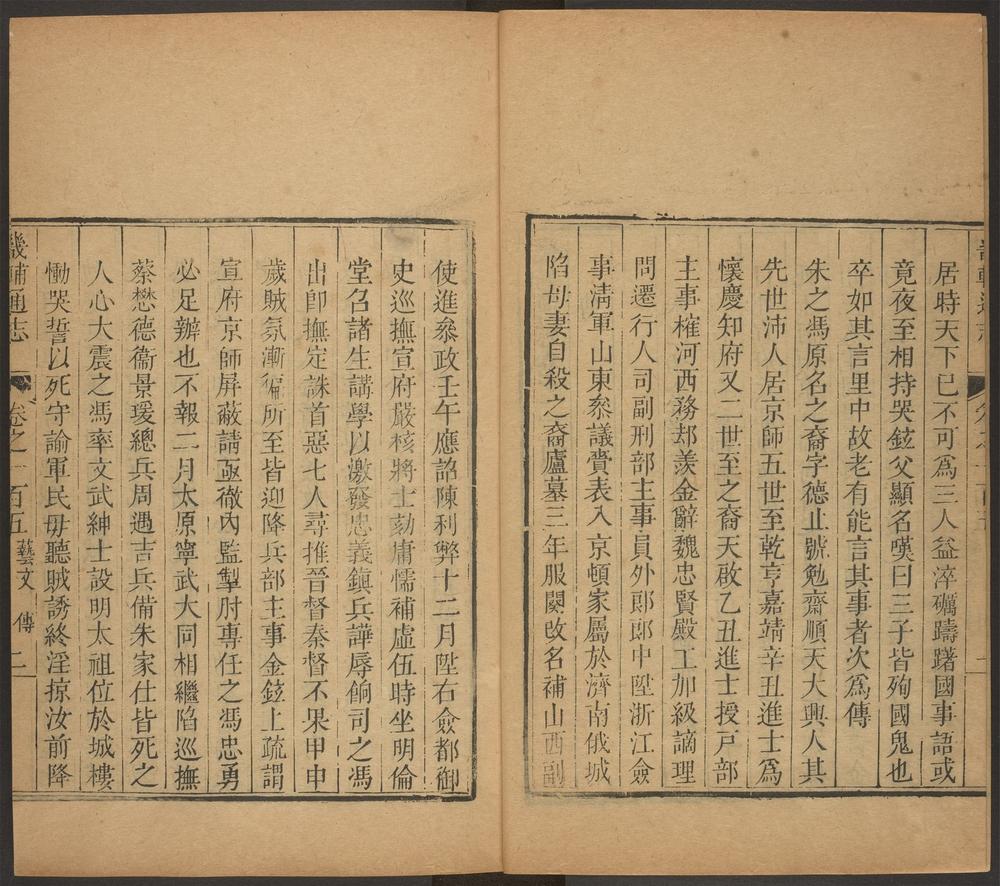 居時天下已不可為三人益淬礪躊躇國事語或
竟夜至相持哭鉉父顯名嘆曰三子皆殉國鬼也
卒如其言里中故老有能言其事者次為傳
朱之馮原名之裔字德止號勉齋順天大興人其
先世沛人居京師五世至乾亨嘉靖辛丑進士為
懷慶知府又二世至之裔天啟乙丑進士授戸部
主事榷河西務却羨金辭魏忠賢殿工加級謫理
問遷行人司副刑部主事員外郎郎中陞浙江僉
事清軍山東叅議賫表入京頓家屬於濟南俄城
陷母妻自殺之裔廬墓三年服闋改名補山西副
使進叅政壬午應詔陳利弊十二月陞右僉都御
史巡撫宣府嚴核將士劾庸懦補虛伍時坐明倫
堂召諸生講學以激發忠義鎮兵譁辱餉司之馮
出卽撫定誅首惡七人尋推晉督秦督不果甲申
歲賊氛漸徧所至皆迎降兵部主事金鉉上疏謂
宣府京師屏蔽請亟徹內監掣肘專任之馮忠勇
必足辦也不報二月太原寧武大同相繼陷巡撫
蔡懋德衞景瑗總兵周遇吉兵備朱家仕皆死之
人心大震之馮率文武紳士設明太祖位於城樓
慟哭誓以死守諭軍民毋聽賊誘終淫掠汝前降
畿輔通志
卷之一百五 藝文 傳 二